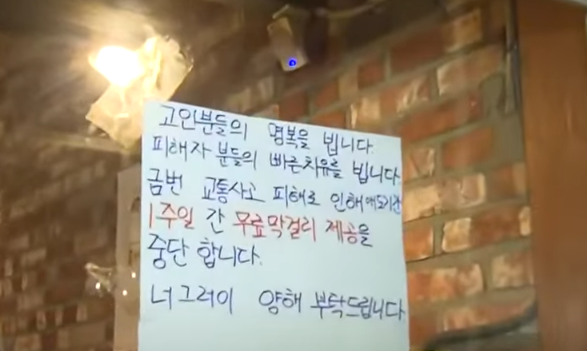 고인분들의 명복을 빕니다.
피해자 분들의 빠른치유를 빕니다.
금번 교통사고 피해로 인해 애도기간
1주일 간 무료막걸리 제공을
중단 합니다.
너그러이 양해 부탁드립니다